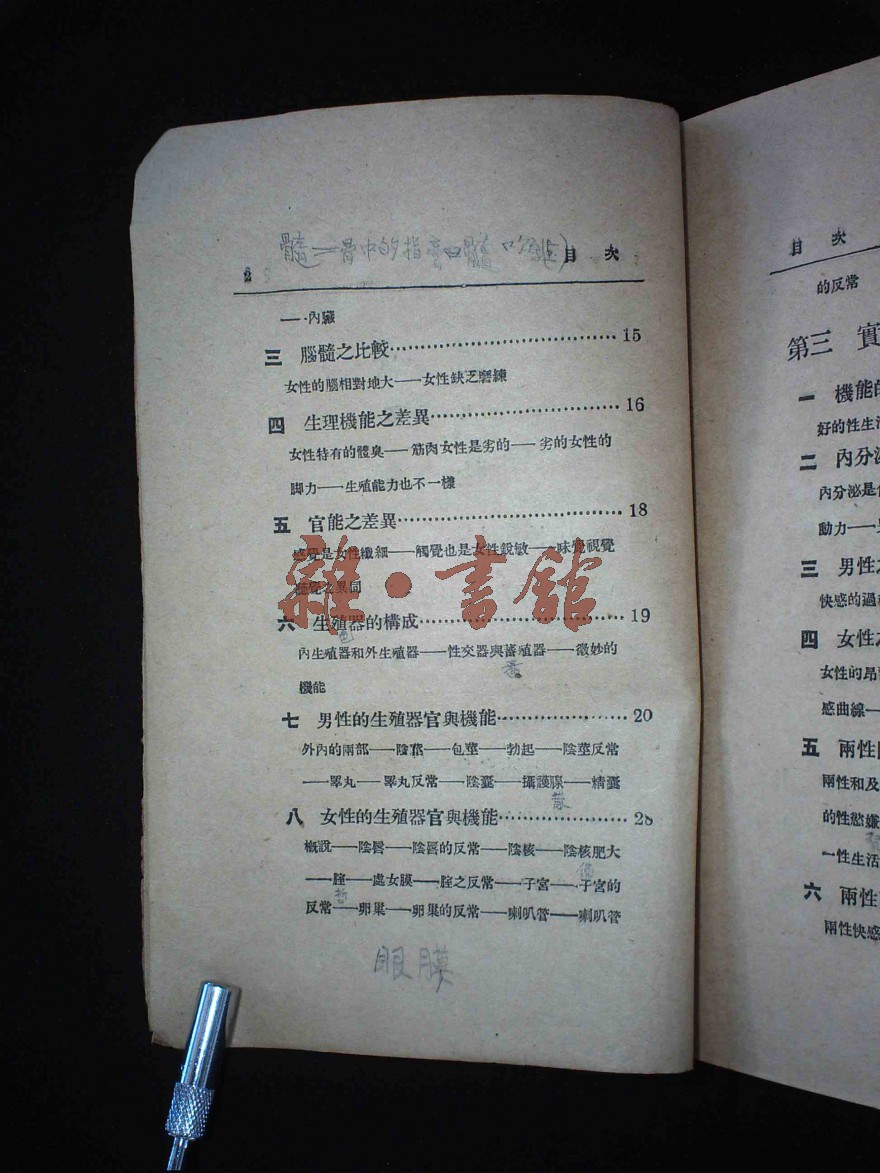 2
目次
——內臟
三 腦髓之比較……………………………15
女性的腦相對地大——女性缺乏磨練
四 生理機能之差異……………………………16
女性特有的體臭——筋肉女性是劣的——劣的女性的
脚力——生殖能力也不一樣
五 官能之差異……………………………18
感覺是女性纖細——觸覺也是女性銳敏——味覺視覺
聽覺之異同
六 生殖器的構成……………………………19
內生殖器和外生殖器——性交器與蓄殖器——微妙的
機能
七 男性的生殖器官與機能……………………20
外內的兩部——陰莖——包莖——勃起——陰莖反常
——睪丸——睪丸反常——陰囊——攝護腺——精囊
八 女性的生殖器官與機能……………………28
概說——陰唇——陰唇的反常——陰核——陰核肥大
——腟——處女膜——腟之反常——子宮——子宮的
反常——卵巢——卵巢的反常——喇叭管——喇叭管
眼膜
雜·書館
目次
的反常
第三 實
一 機能的
好的性生活
二 內分泌
內分泌是
動力——
三 男性之
快感的過
四 女性之
女性的昂
感曲線——
五 兩性
兩性和及
的性慾嫌
一性生活
六 兩性
兩性快感